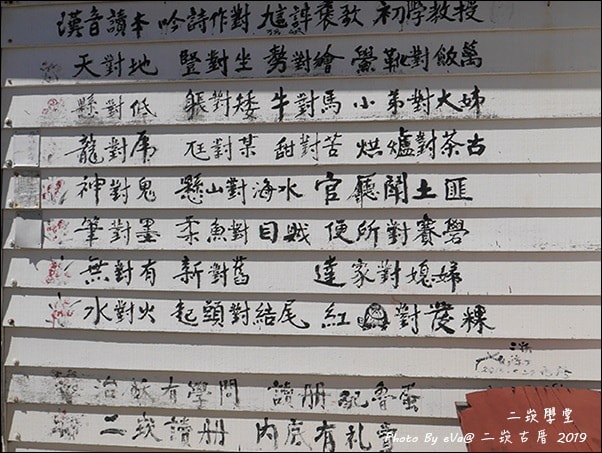 漢音讀本 吟詩作對 褒歌 初學教授
天對地 豎對坐 勢對繪 鱟靴對飯萬
懸對低 躼對矮 牛對馬 小弟對大姊
龍對虎 尪對某 甜對苦 烘爐對茶古
神對鬼 懸山對海水 官廳鬪土匪
筆對墨 柔魚對目賊 便所對賽礐
無對有 新對舊 達家對媳婦
水對火 起頭對結尾 紅 對發粿
有學問 讀冊 魯蛋
二崁讀冊 內底有礼
二崁學堂
Photo By eVa@ 二崁古厝 2019